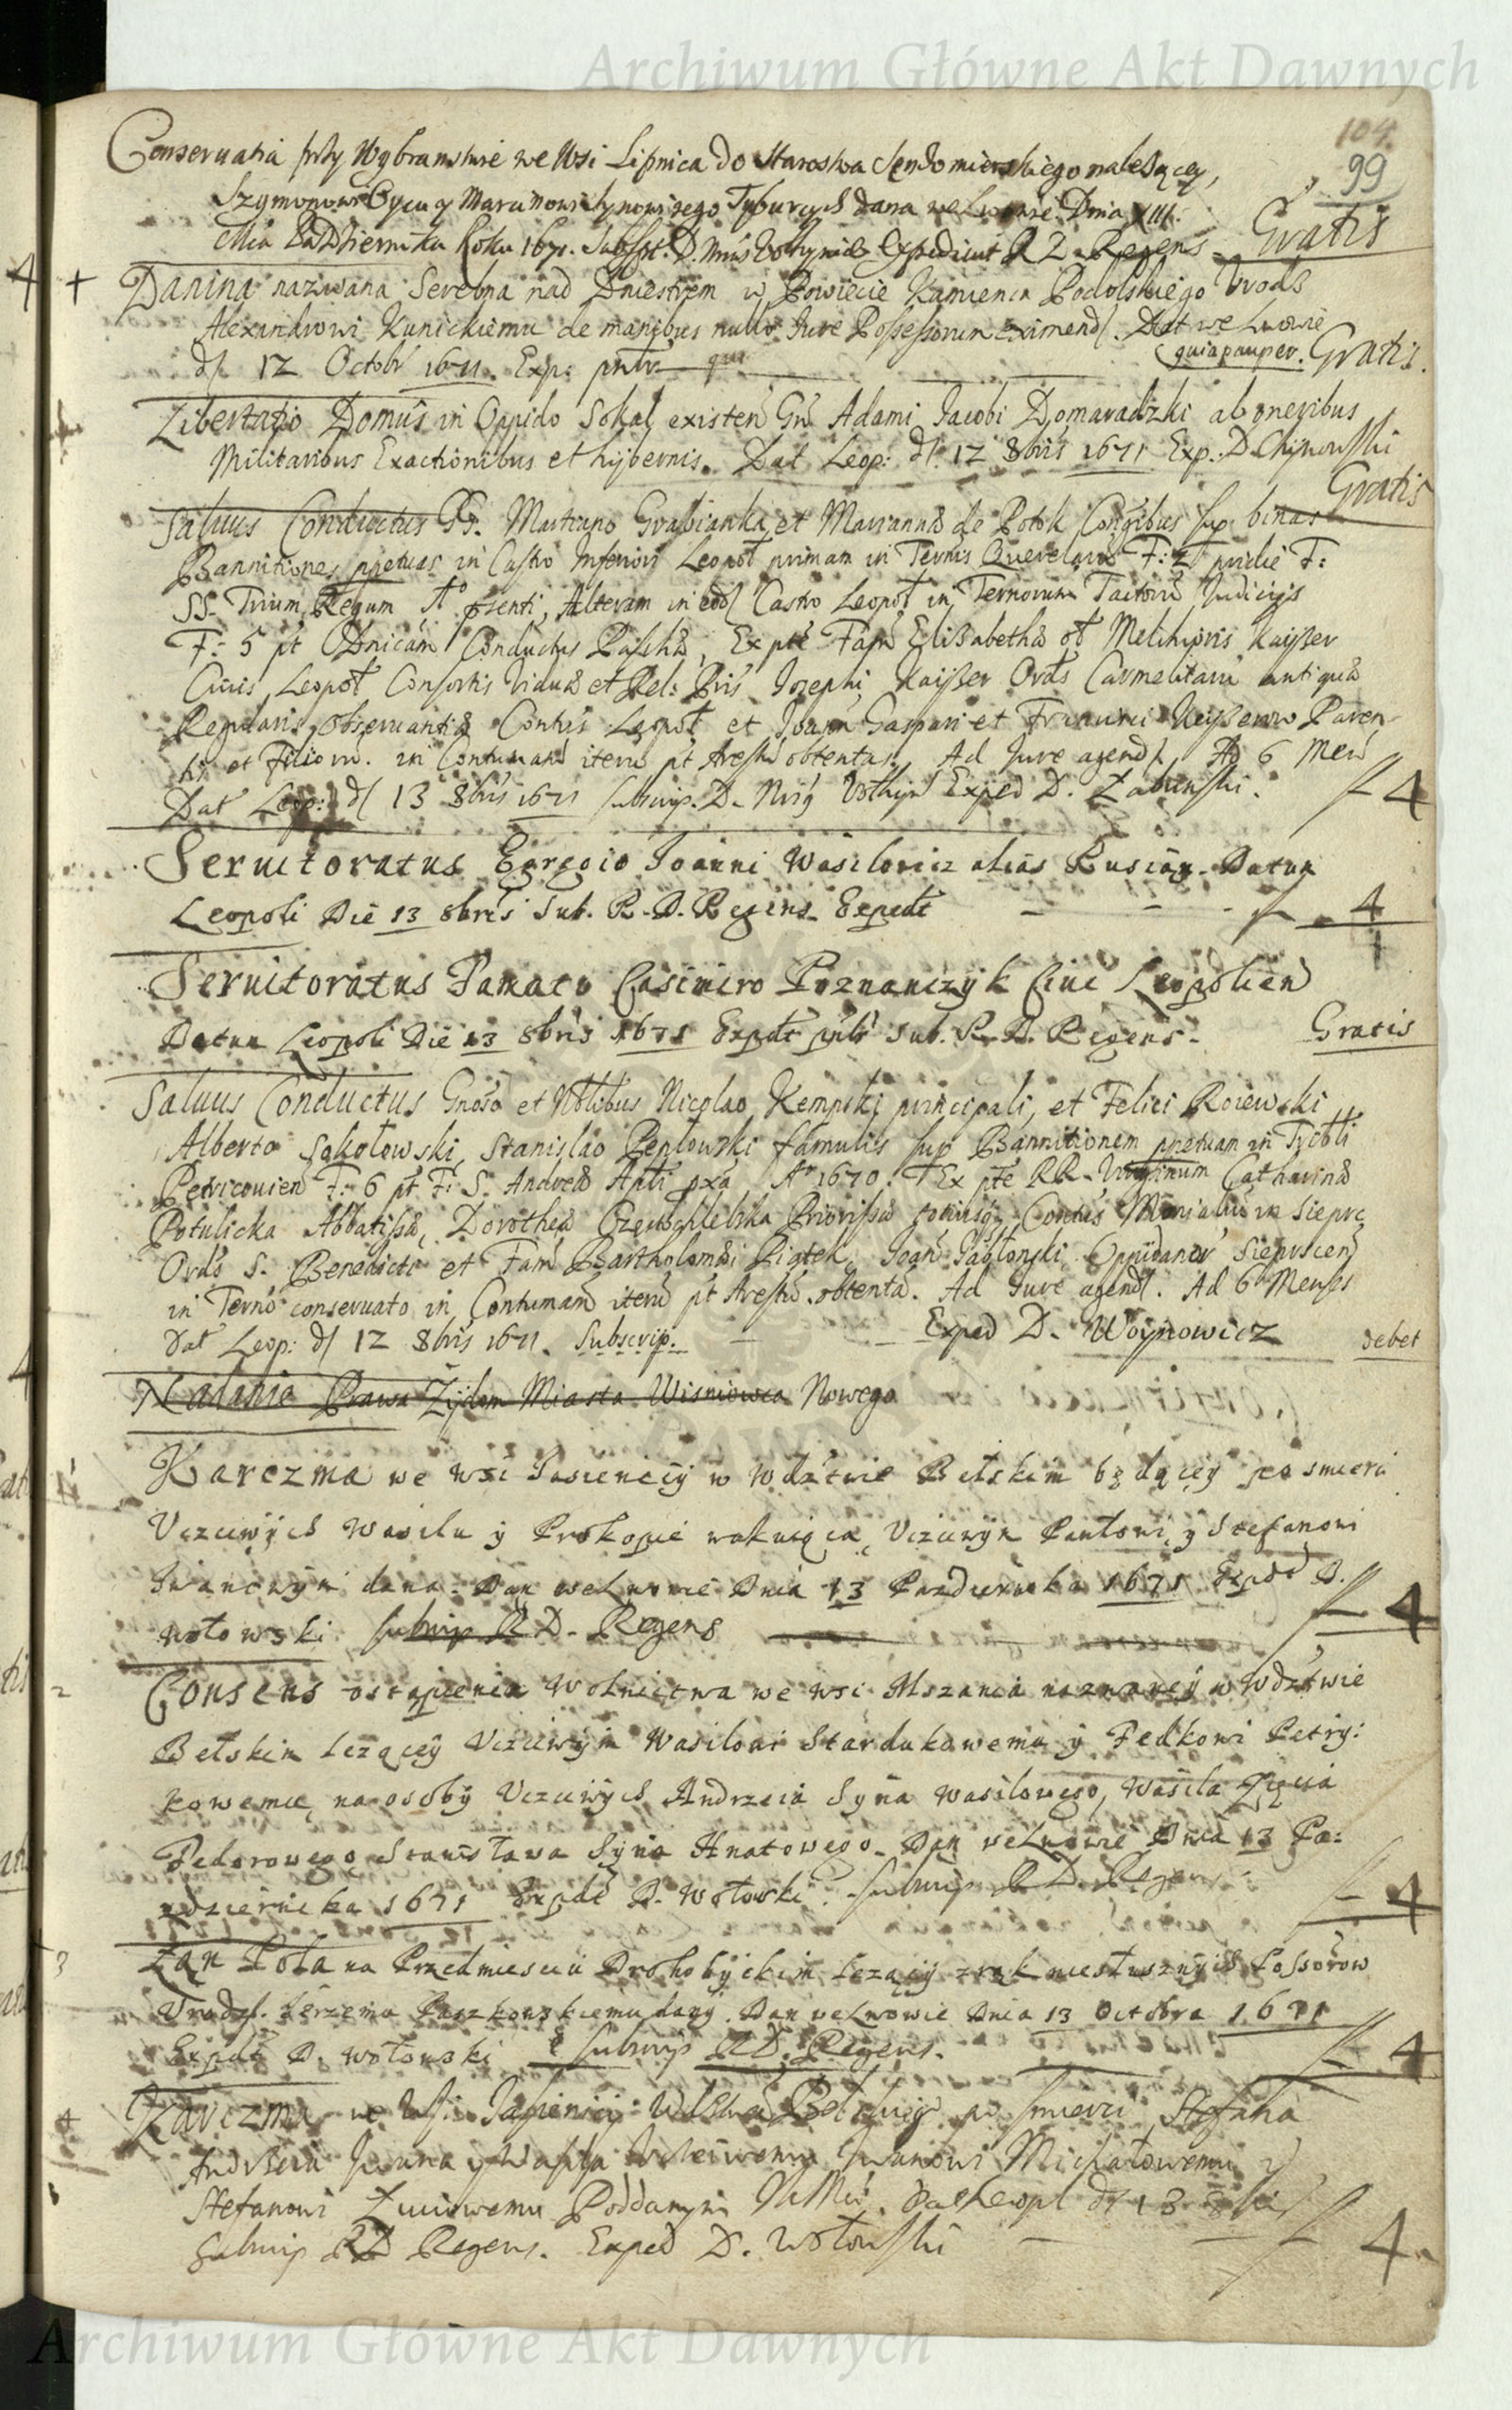 Archiwum Główne Akt Dawnych
104
99
Conseruatia przy Wybranstwie we Wsi Lipnica do Starostwa Sendomierskiego należącey,
Szymonowi Oycu y Marcinowi Synowi iego Tyburcych dana we Lwowie Dnia XIII.
Mca Października Roku 1671. Subscr. D. Expediut R D Regens Gratis
Danina nazwana Serebna nad Dniestrem w Powiecie Kamienca Podolskiego Urodz
Alexandrowi Kunickiemu de manibus nullo Jure Possessorum eximend. Dat we Lwowie
d 12 Octobr 1671. Exp: pntr quia pauper. Gratis.
Libertatio Domus in Oppido Sokal existen Gn Adami Jacobi Domaradzki ab oneribus
Militaribus Exactionibus et hybernis. Dat Leop: d. 12 8bris 1671 Exp. D. Chijnowski
Gratis
Saluus Conductus GG. Martiano Grabianka et Mariannae de Potok Conjgibus sup binas
Bannitiones ppetuas in Castro Inferiori Leopol primam in Termis Querelaru F: 2 pridie F:
SS. Trium Regum Ao psenti, Alteram in eod Castro Leopol in Ternorum Tactoru Judicijs
F: 5 pt Dnicam Conductus Paschae, Ex pte Fam Elisabethae ol Melchioris Kaysser
Ciuis Leopol Consortis Viduae et Rel: Pris Josephi Kaysser Ords Carmelitaru antiquae
Regularis obseruantiae Contus Leopol et Joan Gaspari et Francisci Kaysserow Paren-
tis et Filioru. in Contumaci iteru pt Arestu obtentas. Ad Jure agend. Ad 6 Men
Dat Leop: d 13 8bris 1671 subscrip. D. Exped D. Zaburski. f 4
Seruitoratus Egregio Joanni Wasilowicz alias Rusian. Datum
Leopoli Die 13 8bris Sub. R. D. Regens. Expedt f 4
Seruitoratus Famato Casimiro Poznanczyk Ciui Leopolien
Datum Leopoli Die 13 8bris 1671 Expdt pnts Sub. R. D. Regens. Gratis
Saluus Conductus Gnoso et Nblibus Nicolao Kempski principali, et Felici Roiewski
Alberto Sokołowski, Stanislao Pepłowski famulis sup Bannitionem ppetuam in Trbli
Petricouien F: 6 pt F: S. Andreae Apli pxa Ao 1670. Ex pte RR. Virginum Catharinae
Potulicka Abbatissae, Dorotheae Priorissae totiusq Contus Monialiu in Sierpc
Ords S. Benedicti et Fam Bartholomaei Piątek, Joan Jabłonski Oppidanor Sieprscen
in Terno conseruato in Contumaci iteru pt Arestu obtenta. Ad Jure agend. Ad 6 Menses
Dat Leop: d 12 8bris 1671. Subscrip. Exped D. Woynowicz debet
Nadanie Prawa Żydom Miasta Wisniowca Nowego
Karczma we wsi Jasienicy w Wdztwie Bełskim będącey po smierci
Uczciwych Wasila y Prokopie wakuiąca, Uczciwym Pawłowi, y Stefanowi
Iwanowym dana. Dan we Lwowie Dnia 13 Pazdziernika 1671 Expdt D.
Wołowski subscrip R D. Regens f 4
Consens ostąpienia Wolnictwa we wsi Mszania nazwaney w Wdztwie
Bełskim leżącey Uczciwym Wasilowi Stardukowemu y Fedkowi Petry:
kowemu, na osoby Uczciwych Andrzeia Syna Wasilowego, Wasila Zięcia
Fedorowego Stanisława Syna Hnatowego. Dan we Lwowie Dnia 13 Pa:
zdziernika 1671 Expdt D. Wołowski. subscrip R D. Regens f 4
Łan Pola na Przedmiesciu Drohobyckim leżący z rąk niesłusznych Possorow
Urodz. Jerzemu Paszkowskiemu dany. Dan we Lwowie Dnia 13 Octobra 1671
Expdt D. Wołowski subscrip R D. Regens. f 4
Karczma we Wsi Jasienicy Wdztwa Bełskiego po smierci Stefana
Andrzeia Iwana y Wasyla Uczciwemu Iwanowi Michałowemu y
Stefanowi Łuciowemu Poddanym Dat Leopl d 13 8bris
subscrip RD Regens. Exped D. Wołowski f 4.
Archiwum Główne Akt Dawnych